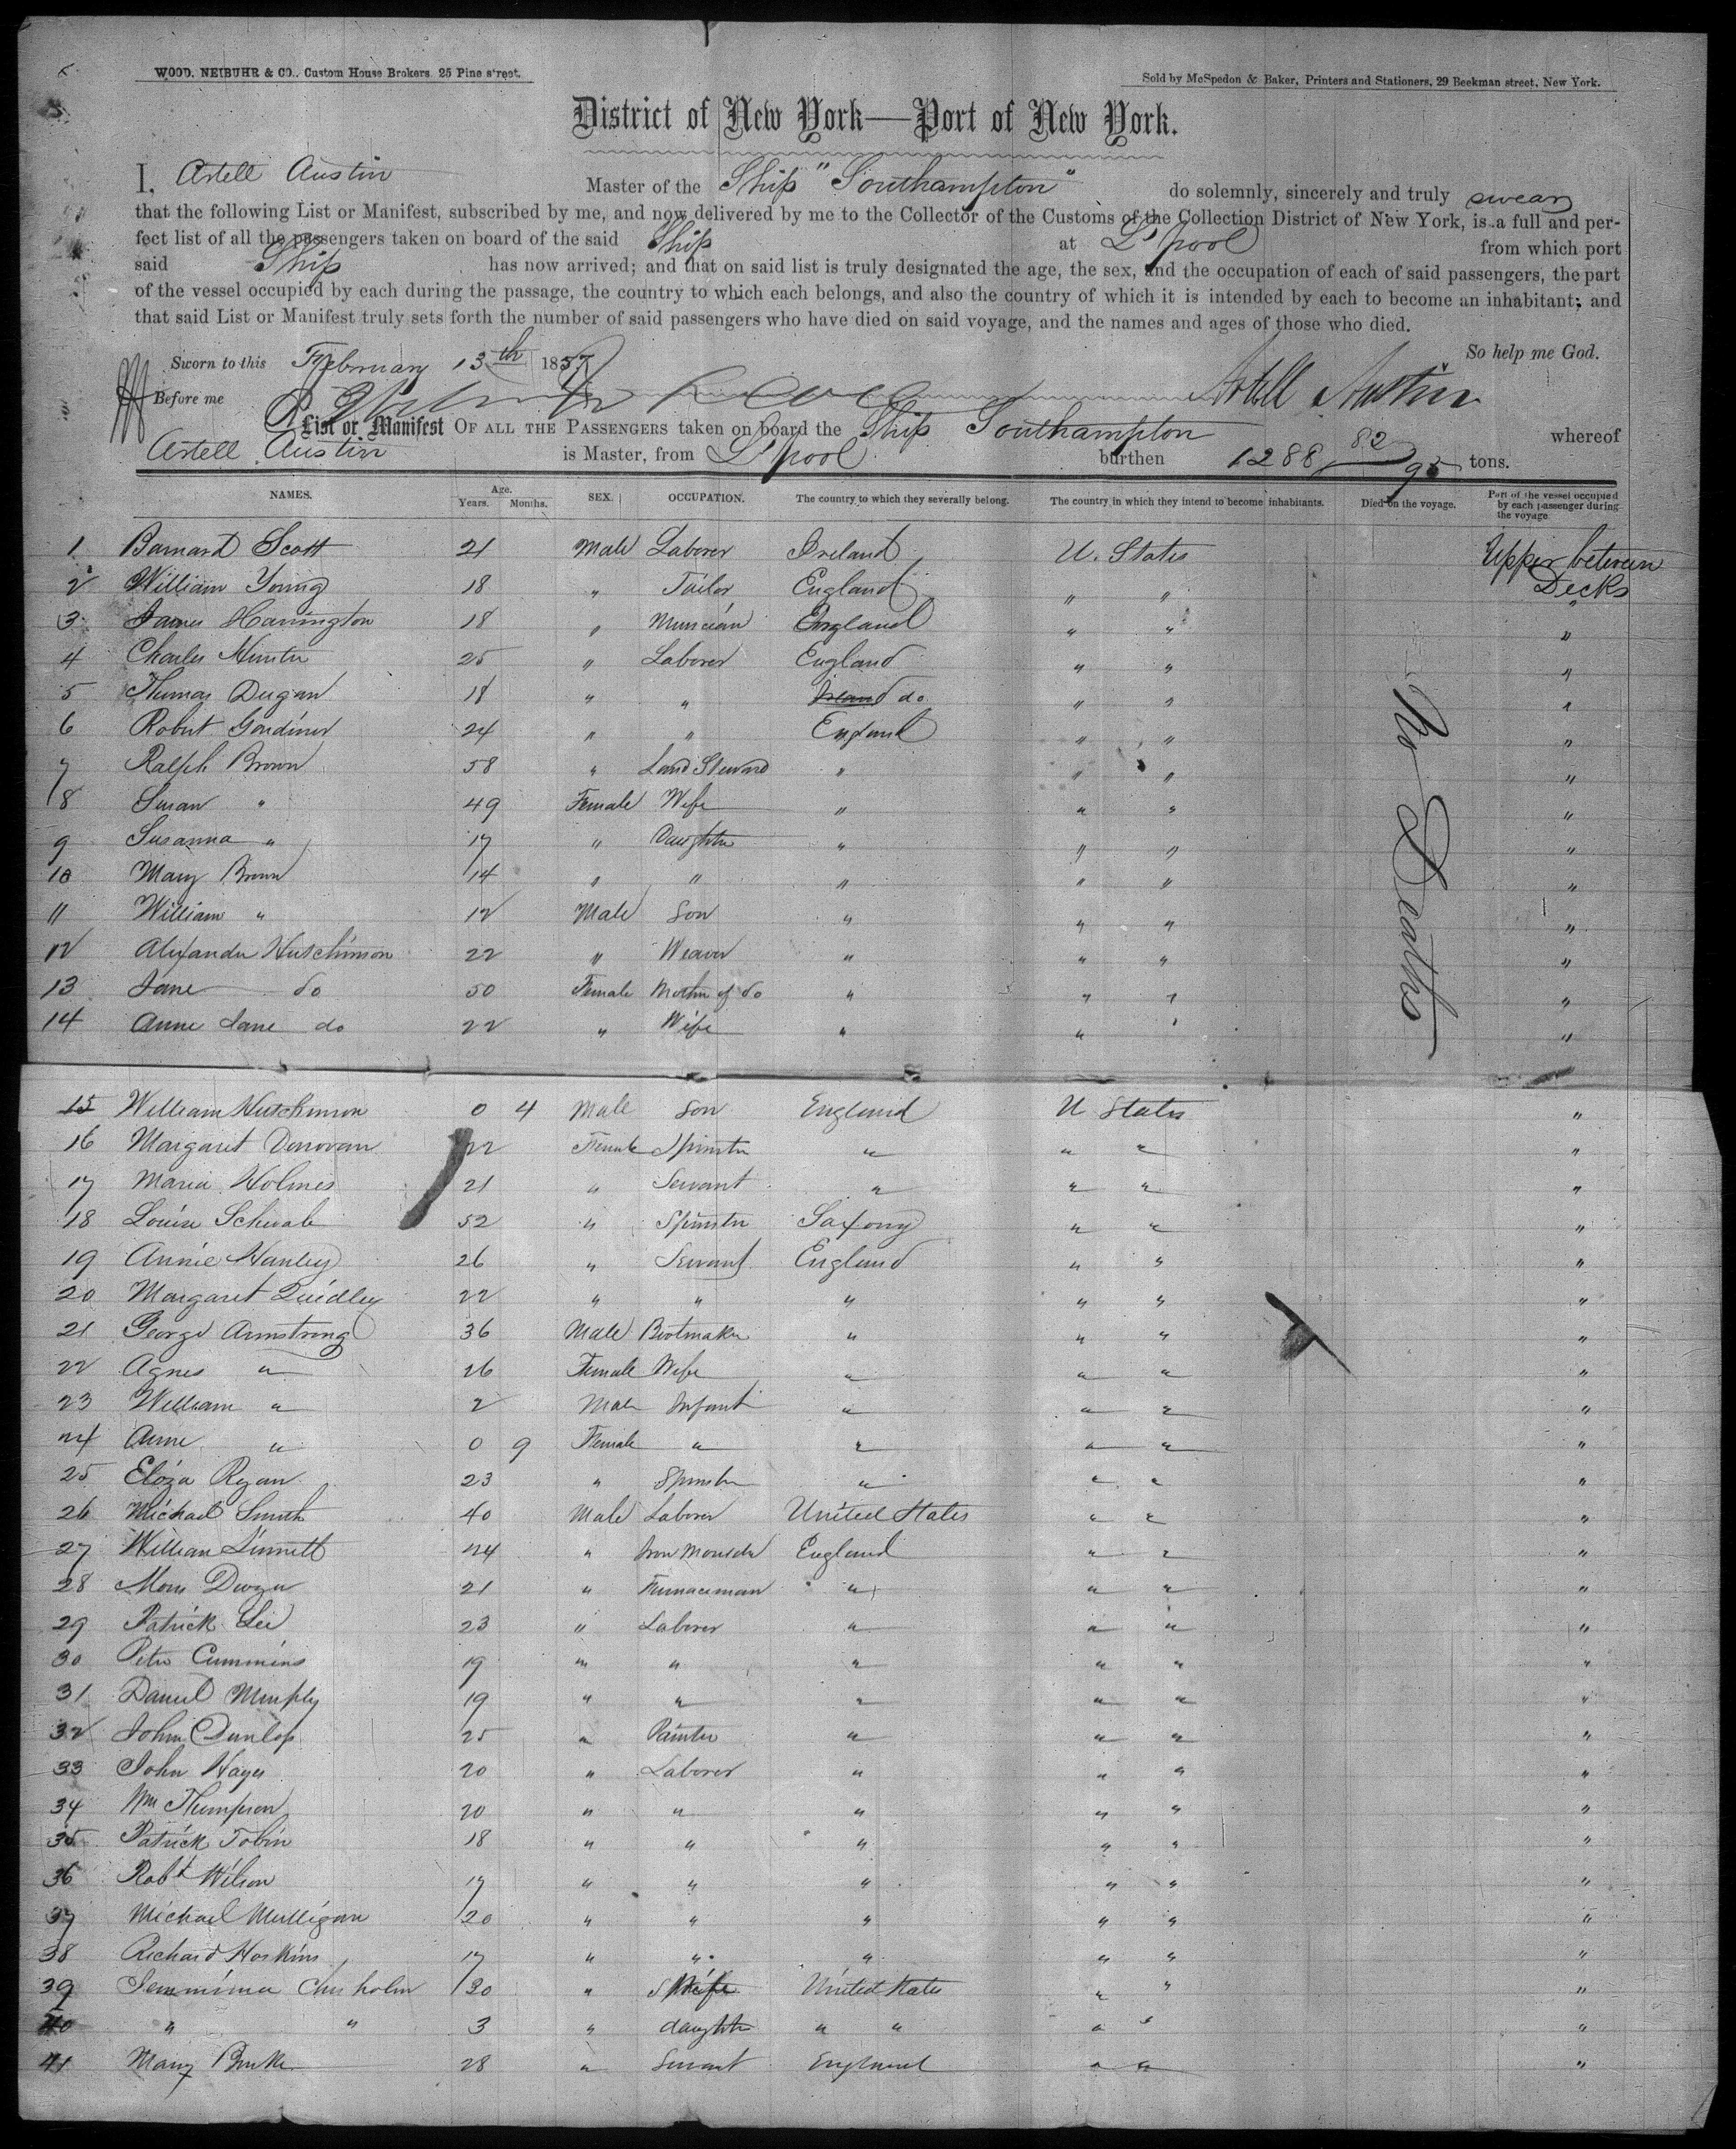 WOOD, NEIBUHR & CO., Custom House Brokers. 25 Pine street.
Sold by McSpedon & Baker, Printers and Stationers, 29 Beekman street, New York.
District of New York—Port of New York.
I, Artell Austin Master of the Ship "Southampton" do solemnly, sincerely and truly swear
that the following List or Manifest, subscribed by me, and now delivered by me to the Collector of the Customs of the Collection District of New York, is a full and per-
fect list of all the passengers taken on board of the said Ship at L'pool from which port
said Ship has now arrived; and that on said list is truly designated the age, the sex, and the occupation of each of said passengers, the part
of the vessel occupied by each during the passage, the country to which each belongs, and also the country of which it is intended by each to become an inhabitant; and
that said List or Manifest truly sets forth the number of said passengers who have died on said voyage, and the names and ages of those who died.
So help me God.
Sworn to this February 13th 1857
Before me Artell Austin
List or Manifest OF ALL THE PASSENGERS taken on board the Ship Southampton whereof
Artell Austin is Master, from L'pool burthen 1288 82/95 tons.
NAMES. Age. Years. Months. SEX. OCCUPATION. The country to which they severally belong. The country in which they intend to become inhabitants. Died on the voyage. Part of the vessel occupied by each passenger during the voyage
1 Barnard Scott 21 Male Laborer Ireland U. States Upper between Decks
2 William Young 18 " Tailor England " " "
3 James Harrington 18 " Musician England " " "
4 Charles Hunter 25 " Laborer England " " "
5 Thomas Dugan 18 " " Ireland do " " "
6 Robert Gardiner 24 " " England " " "
7 Ralph Brown 58 " Land Steward " " " "
8 Susan " 49 Female Wife " " " "
9 Susanna " 17 " Daughter " " " "
10 Mary Brown 14 " " " " " "
11 William " 12 Male Son " " " "
12 Alexander Hutchinson 22 " Weaver " " " "
13 Jane do 50 Female Mother of do " " " "
14 Anne Jane do 22 " Wife " " " "
No Deaths
15 William Hutchinson 0 4 Male Son England U States "
16 Margaret Donovan 22 Female Spinster " " " "
17 Maria Holmes 21 " Servant " " " "
18 Louise Schwab 52 " Spinster Saxony " " "
19 Annie Hanley 26 " Servant England " " "
20 Margaret Quidley 22 " " " " " "
21 George Armstrong 36 Male Bootmaker " " " "
22 Agnes " 26 Female Wife " " " "
23 William " 2 Male Infant " " " "
24 Anne " 0 9 Female " " " " "
25 Eliza Ryan 23 " Spinster " " " "
26 Michael Smith 40 Male Laborer United States " " "
27 William Linnett 24 " Iron Moulder England " " "
28 21 " Furnaceman " " " "
29 Patrick Lee 23 " Laborer " " " "
30 Peter Cummins 19 " " " " " "
31 Daniel Murphy 19 " " " " " "
32 John Dunlop 25 " Painter " " " "
33 John Hayes 20 " Laborer " " " "
34 Wm Thompson 20 " " " " " "
35 Patrick Tobin 18 " " " " " "
36 Robt Wilson 17 " " " " " "
37 Michael Mulligan 20 " " " " " "
38 Richard Hoskins 17 " " " " " "
39 Jemmima Chisholm 30 " Wife United States " " "
40 " " 3 " daughter " " " " "
41 Mary Burke 28 " Servant England " " "